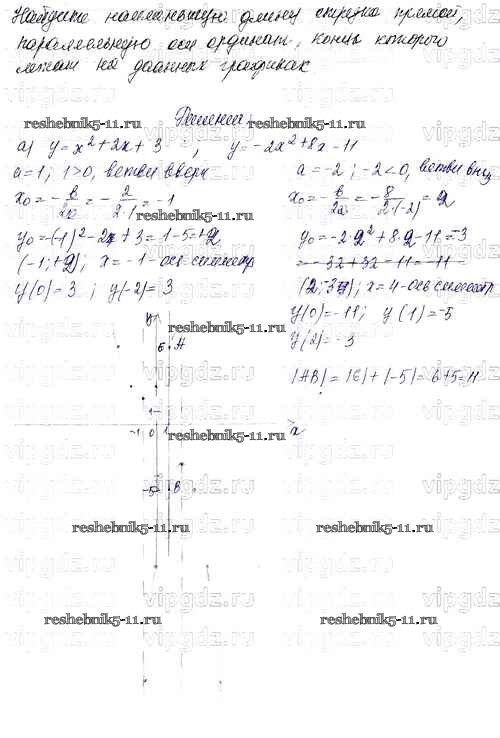 Найдите наименьшую длину отрезка прямой,
параллельную оси ординат, концы которого
лежат на данных графиках
Решение
reshebnik5-11.ru reshebnik5-11.ru
а) y = x² + 2x + 3 ; y = -2x² + 8x - 11
a = 1; 1 > 0, ветви вверх a = -2; -2 < 0, ветви вниз
x₀ = -в/2а = -2/2·1 = -1 x₀ = -в/2а = -8/2·(-2) = 2
y₀ = (-1)² - 2x + 3 = 1 - 5 = +2 y₀ = -2·2² + 8·2 - 11 = -3
(-1; +2); x = -1 - ось симметр = -32 + 32 - 11 = -11
y(0) = 3 ; y(-2) = 3 (2; -3); x = 4 - ось симмет
y(0) = -11; y(1) = -5
y(2) = -3
y
6 A
|AB| = |6| + |-5| = 6 + 5 = 11
1
-1 0 1 x
reshebnik5-11.ru reshebnik5-11.ru
-5 B
reshebnik5-11.ru reshebnik5-11.ru
vipgdz.ru vipgdz.ru vipgdz.ru
reshebnik5-11.ru reshebnik5-11.ru
vipgdz.ru vipgdz.ru vipgdz.ru